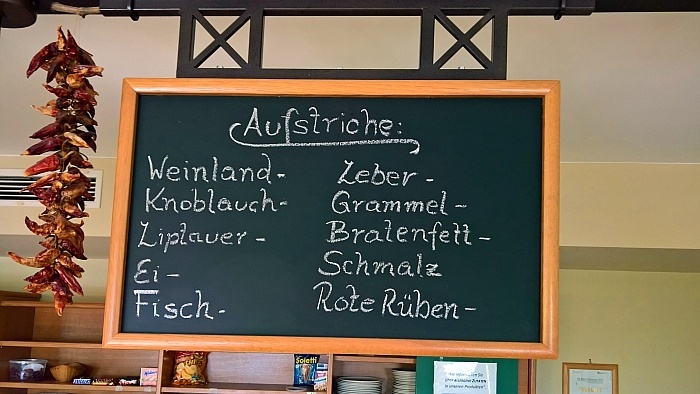 Aufstriche:
Weinland-
Knoblauch-
Liptauer-
Ei-
Fisch-
Leber-
Grammel-
Bratenfett-
Schmalz
Rote Rüben-
Soletti